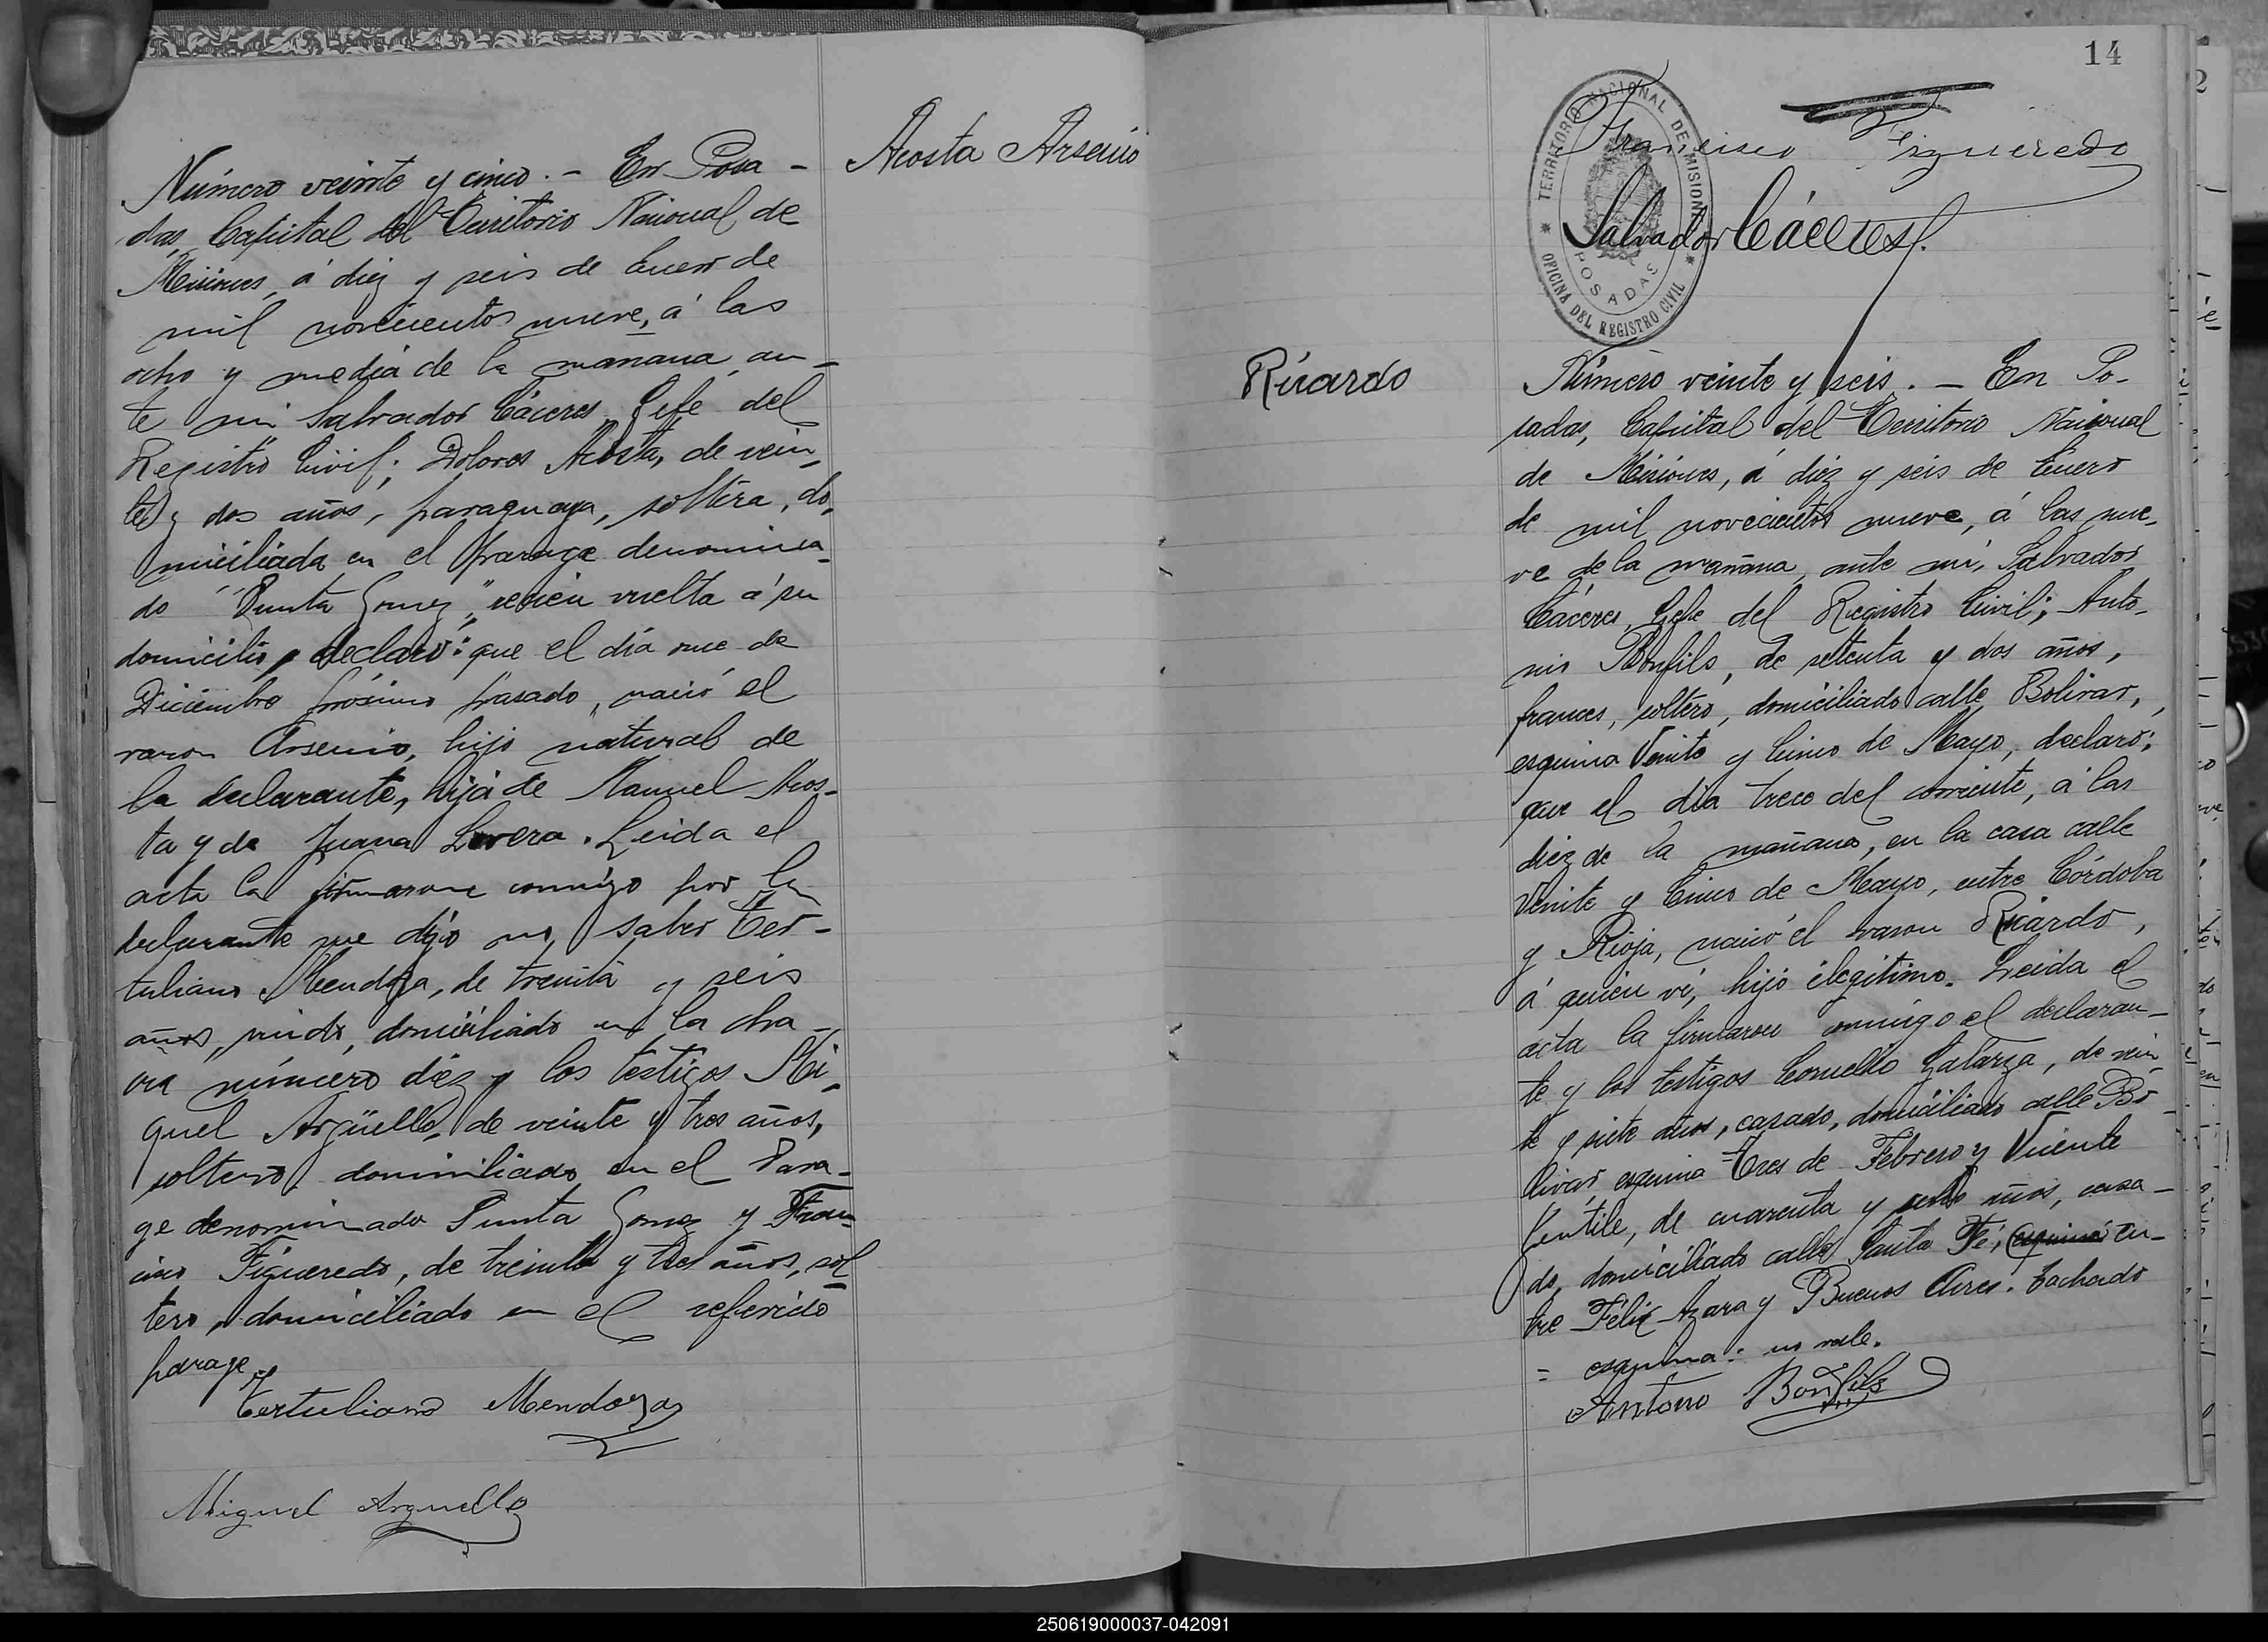 Número veinte y cinco. - En Posa-
das, Capital del Territorio Nacional de
Misiones, á diez y seis de Enero de
mil novecientos nueve, á las
ocho y media de la mañana, an-
te mi Salvador Cáceres, Gefe del
Registro Civil; Dolores Acosta, de vein-
te y dos años, paraguaya, soltera, do-
miciliada en el parage denomina-
do "Punta Gomez", recien vuelta á su
domicilio, declaró: que el día once de
Diciembre próximo pasado, nació el
varon Arsenio, hijo natural de
la declarante, hija de Manuel Acos-
ta y de Juana Lovera. Leida el
acta la firmaron conmigo por la
declarante que dijo no saber Ter-
tuliano Mendoza, de treinta y seis
años, viudo, domiciliado en la cha-
cra número diez y los testigos Mi-
guel Argüello, de veinte y tres años,
soltero, domiciliado en el Para-
ge denominado Punta Gomez y Fran-
cisco Figueredo, de treinta y tres años, sol-
tero, domiciliado en el referido
parage.
Tertuliano Mendoza
Miguel Arguello
Acosta Arsenio
14
Francisco Figueredo
Salvador Cáceres
TERRITORIO NACIONAL DE MISIONES
OFICINA DEL REGISTRO CIVIL
POSADAS
Ricardo
Número veinte y seis. - En Po-
sadas, Capital del Territorio Nacional
de Misiones, á diez y seis de Enero
de mil novecientos nueve, á las nue-
ve de la mañana, ante mi, Salvador
Cáceres, Gefe del Registro Civil; Anto-
nio Bonfils, de setenta y dos años,
frances, soltero, domiciliado calle Bolivar,
esquina Veinte y Cinco de Mayo, declaró:
que el día trece del corriente, á las
diez de la mañana, en la casa calle
Veinte y Cinco de Mayo, entre Córdoba
y Rioja, nació el varon Ricardo,
á quien ví, hijo ilegitimo. Leida el
acta la firmaron conmigo el declaran-
te y los testigos Cornelio Galarza, de vein-
te y siete años, casado, domiciliado calle Bo-
livar esquina Tres de Febrero y Vicente
Gentile, de cuarenta y años, casa-
do, domiciliado calle Santa Fé, esquina en-
tre Félix Azara y Buenos Aires. Tachado
= esquina: no vale.
Antonio Bonfils
250619000037-042091